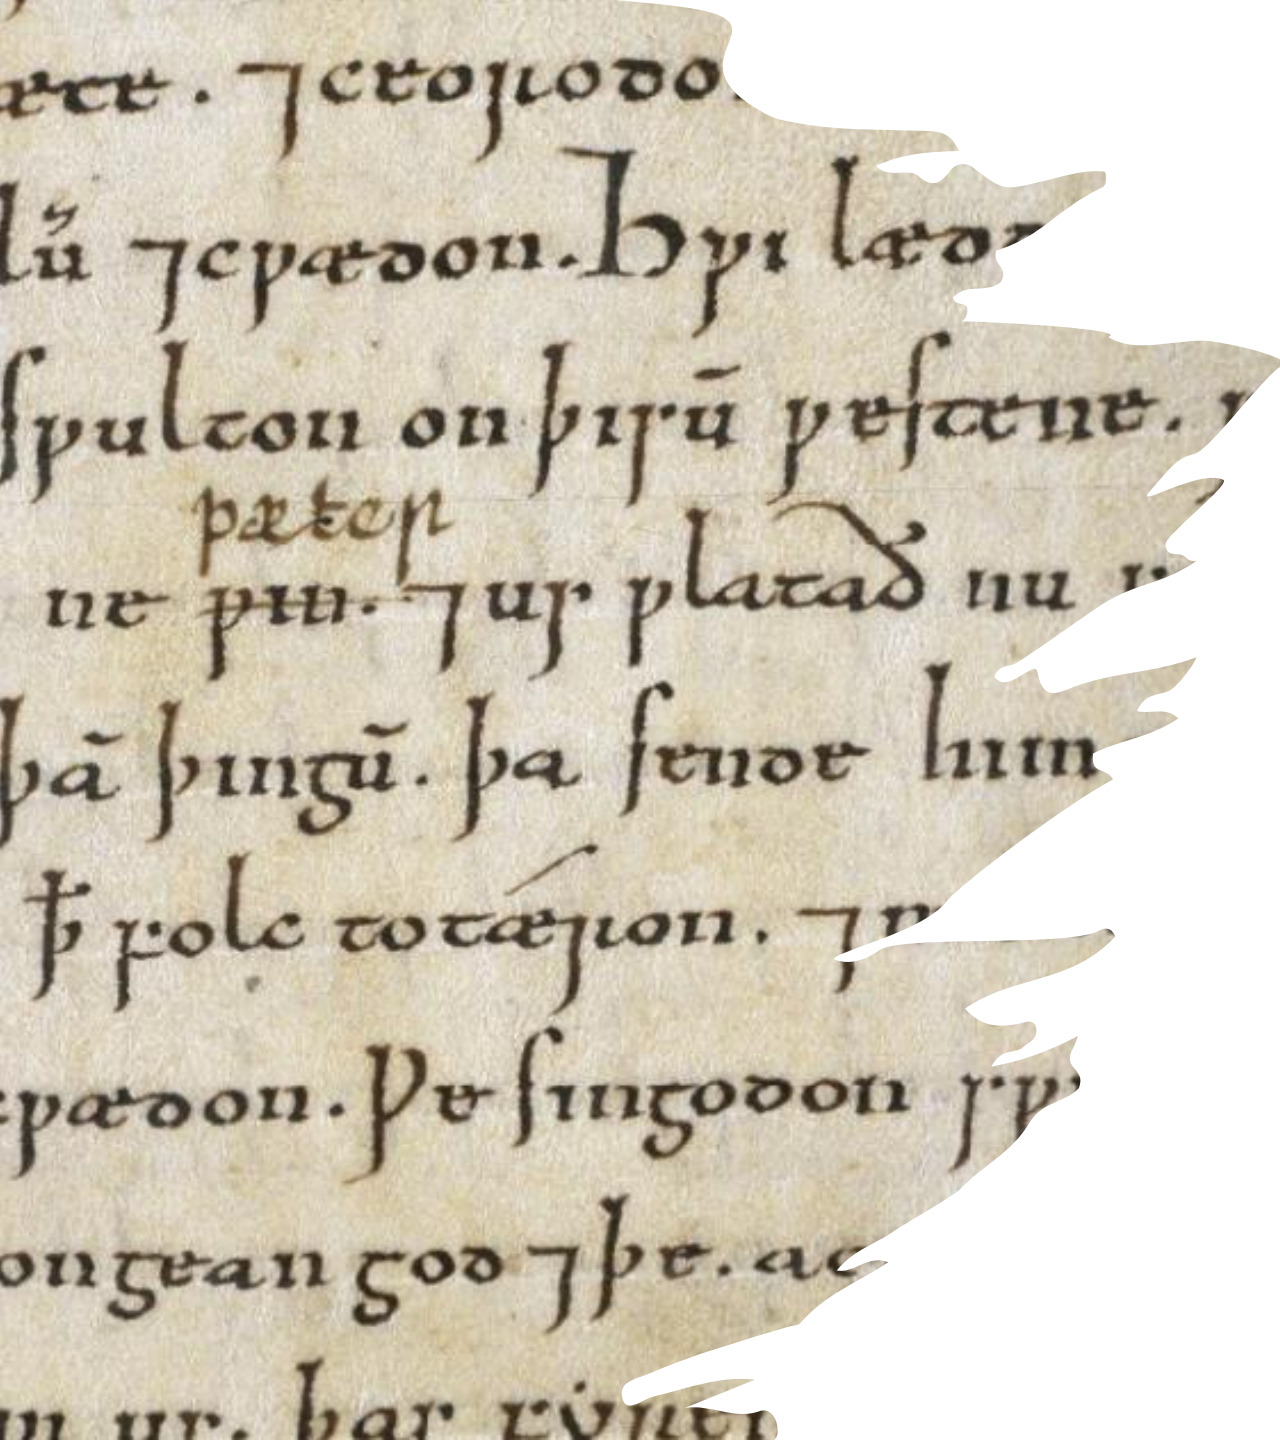 ⁊ceorodo
lū ⁊cƿædon. Hƿi læd
sƿulton on þisū ƿestene.
ƿæter
ne ƿin. ⁊us ƿlatað nu
þā þingū. þa sende him
ꝥ folc totǽron. ⁊
cƿædon. Ƿe singodon sƿ
ongean god ⁊þe. ac
us. þas